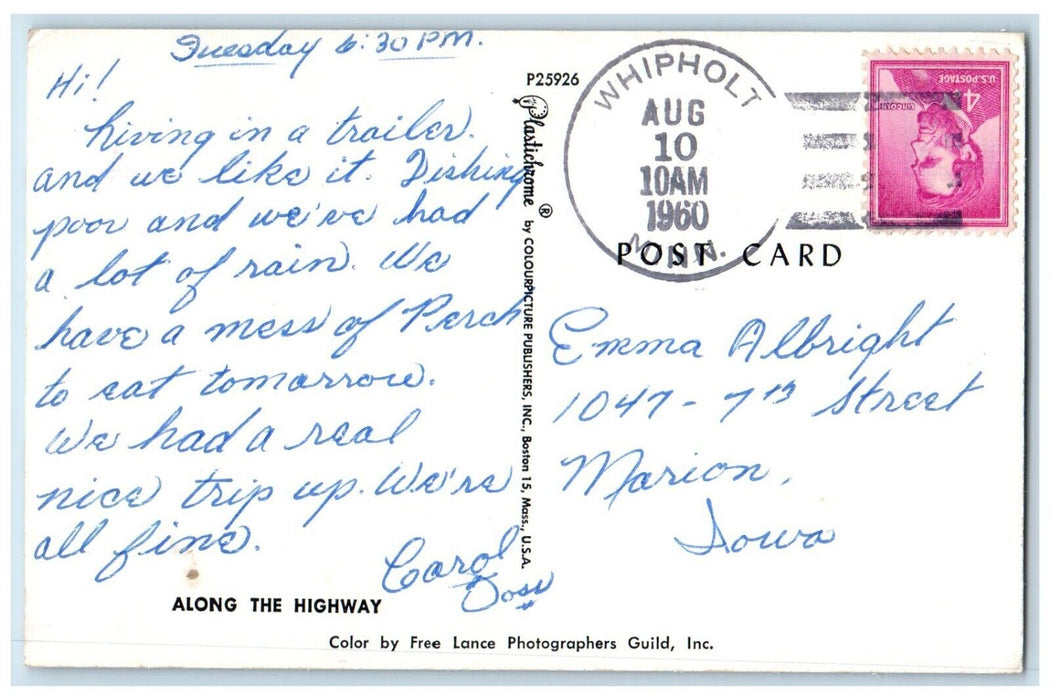 Tuesday 6:30 P.M.
Hi!
Living in a trailer.
and we like it. Fishing
poor and we've had
a lot of rain. We
have a mess of Perch
to eat tomorrow.
We had a real
nice trip up. We're
all fine.
Carol
ALONG THE HIGHWAY
Color by Free Lance Photographers Guild, Inc.
P25926
Plastichrome ® by COLOURPICTURE PUBLISHERS, INC., Boston 15, Mass., U.S.A.
WHIPHOLT
AUG
10
10AM
1960
MINN.
U.S. POSTAGE
4¢
LINCOLN
POST CARD
Emma Albright
1047 - 7th Street
Marion,
Iowa